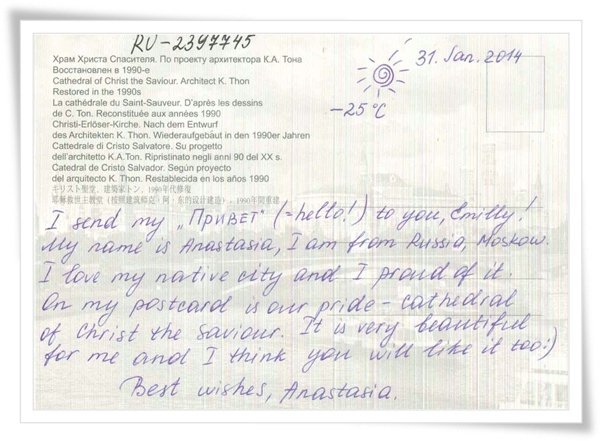 RU-2397745
Храм Христа Спасителя. По проекту архитектора К.А. Тона
Восстановлен в 1990-е
Cathedral of Christ the Saviour. Architect K. Thon
Restored in the 1990s
La cathédrale du Saint-Sauveur. D'après les dessins
de C. Ton. Reconstituée aux années 1990
Christi-Erlöser-Kirche. Nach dem Entwurf
des Architekten: K. Thon. Wiederaufgebaut in den 1990er Jahren
Cattedrale di Cristo Salvatore. Su progetto
dell'architetto K.A.Ton. Ripristinato negli anni 90 del XX s.
Catedral de Cristo Salvador. Según proyecto
del arquitecto K. Thon. Restablecida en los años 1990
キリスト聖堂、建築家トン、1990年代修復
耶稣救世主教堂（按照建筑师克·阿·东的设计建造），1990年间重建
31. Jan. 2014
-25°C
I send my „ПРИВЕТ" (=hello!) to you, Emilly!
My name is Anastasia, I am from Russia, Moskow.
I love my native city and I proud of it.
On my postcard is our pride - cathedral
of Christ the Saviour. It is very beautiful
for me and I think you will like it too:)
Best wishes, Anastasia.